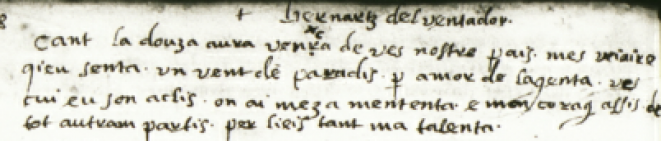 + bernartz del ventador.
Cant la douza aura venra de ves nostre pais. mes veiaire
qieu senta. un vent de paradis. p amor de la genta. ves
cui eu son aclis. on ai meza mententa. e mon corag assis. de
tot autram partis. per lieis tant ma talenta.